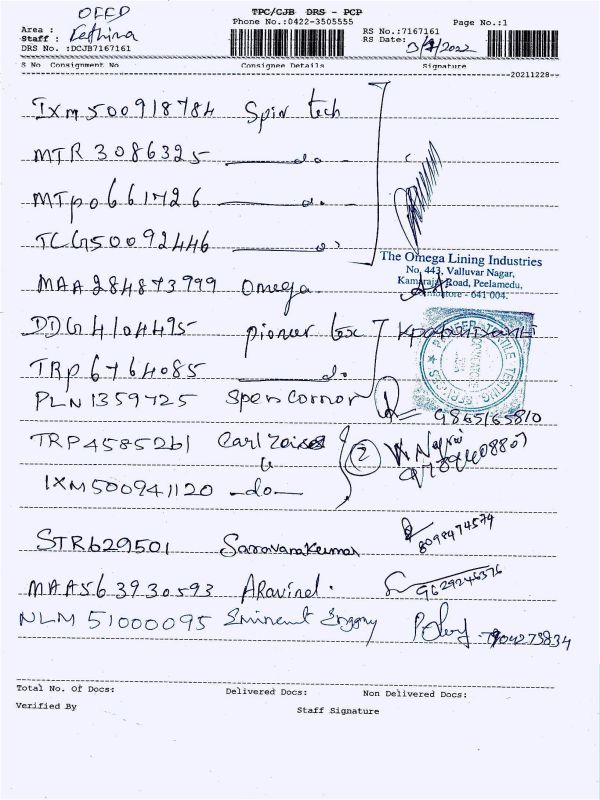 OFFD
TPC/CJB DRS - PCP
Phone No.:0422-3505555
Page No.:1
Area :
Staff :
RS No.:7167161
DRS No. :DCJB7167161
RS Date:
S No Consignment No Consignee Details Signature
20211228--
IXM500918784 Spin tech
MTR3086325 do
MTP0661726 do
TCG50092446 do
The Omega Lining Industries
No. 443, Valluvar Nagar,
Kamarajar Road, Peelamedu,
641 004.
MAA284873999 Omega
DDG4104495 pioneer tex
TRP6764085 do
TEXTILE TESTING SERVICES
PLN1359725
9865165810
TRP4585261 Carl Zeiss
2
IXM500941120 -do-
STR629501 Saravanakumar
8098474574
MAA563930593 ARavind.
9629246376
NLM 51000095 Eminent Enggny
7904273834
Total No. Of Docs: Delivered Docs: Non Delivered Docs:
Verified By Staff Signature